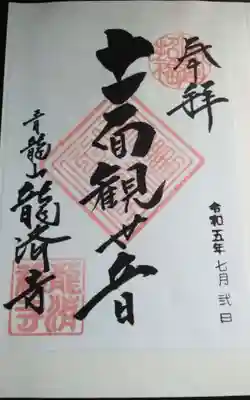 奉拝
令和五年七月弐日
十一面観世音
青龍山龍済寺
龍済寺